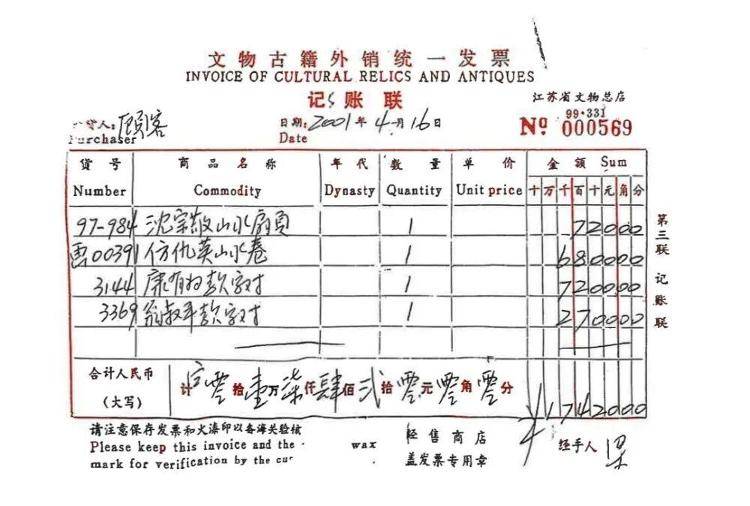 文物古籍外销统一发票
INVOICE OF CULTURAL RELICS AND ANTIQUES
记账联
江苏省文物总店
货人：顾客
Purchaser
日期：2001年4月16日
Date
99·331
Nº 000569
货号 商品名称 年代 数量 单价 金额 Sum
Number Commodity Dynasty Quantity Unit price 十万千百十元角分
97-984 沈宗敬山水扇页 1 72000
00391 仿仇英山水卷 1 680000
3144 康有为款字对 1 720000
3369 翁叔平款字对 1 270000
合计人民币
（大写）
计 零拾壹万柒仟肆佰贰拾零元零角零分
¥1742000
第三联 记账联
请注意保存发票和火漆印以备海关验核
Please keep this invoice and the wax
mark for verification by the cu
经售商店
盖发票专用章
经手人